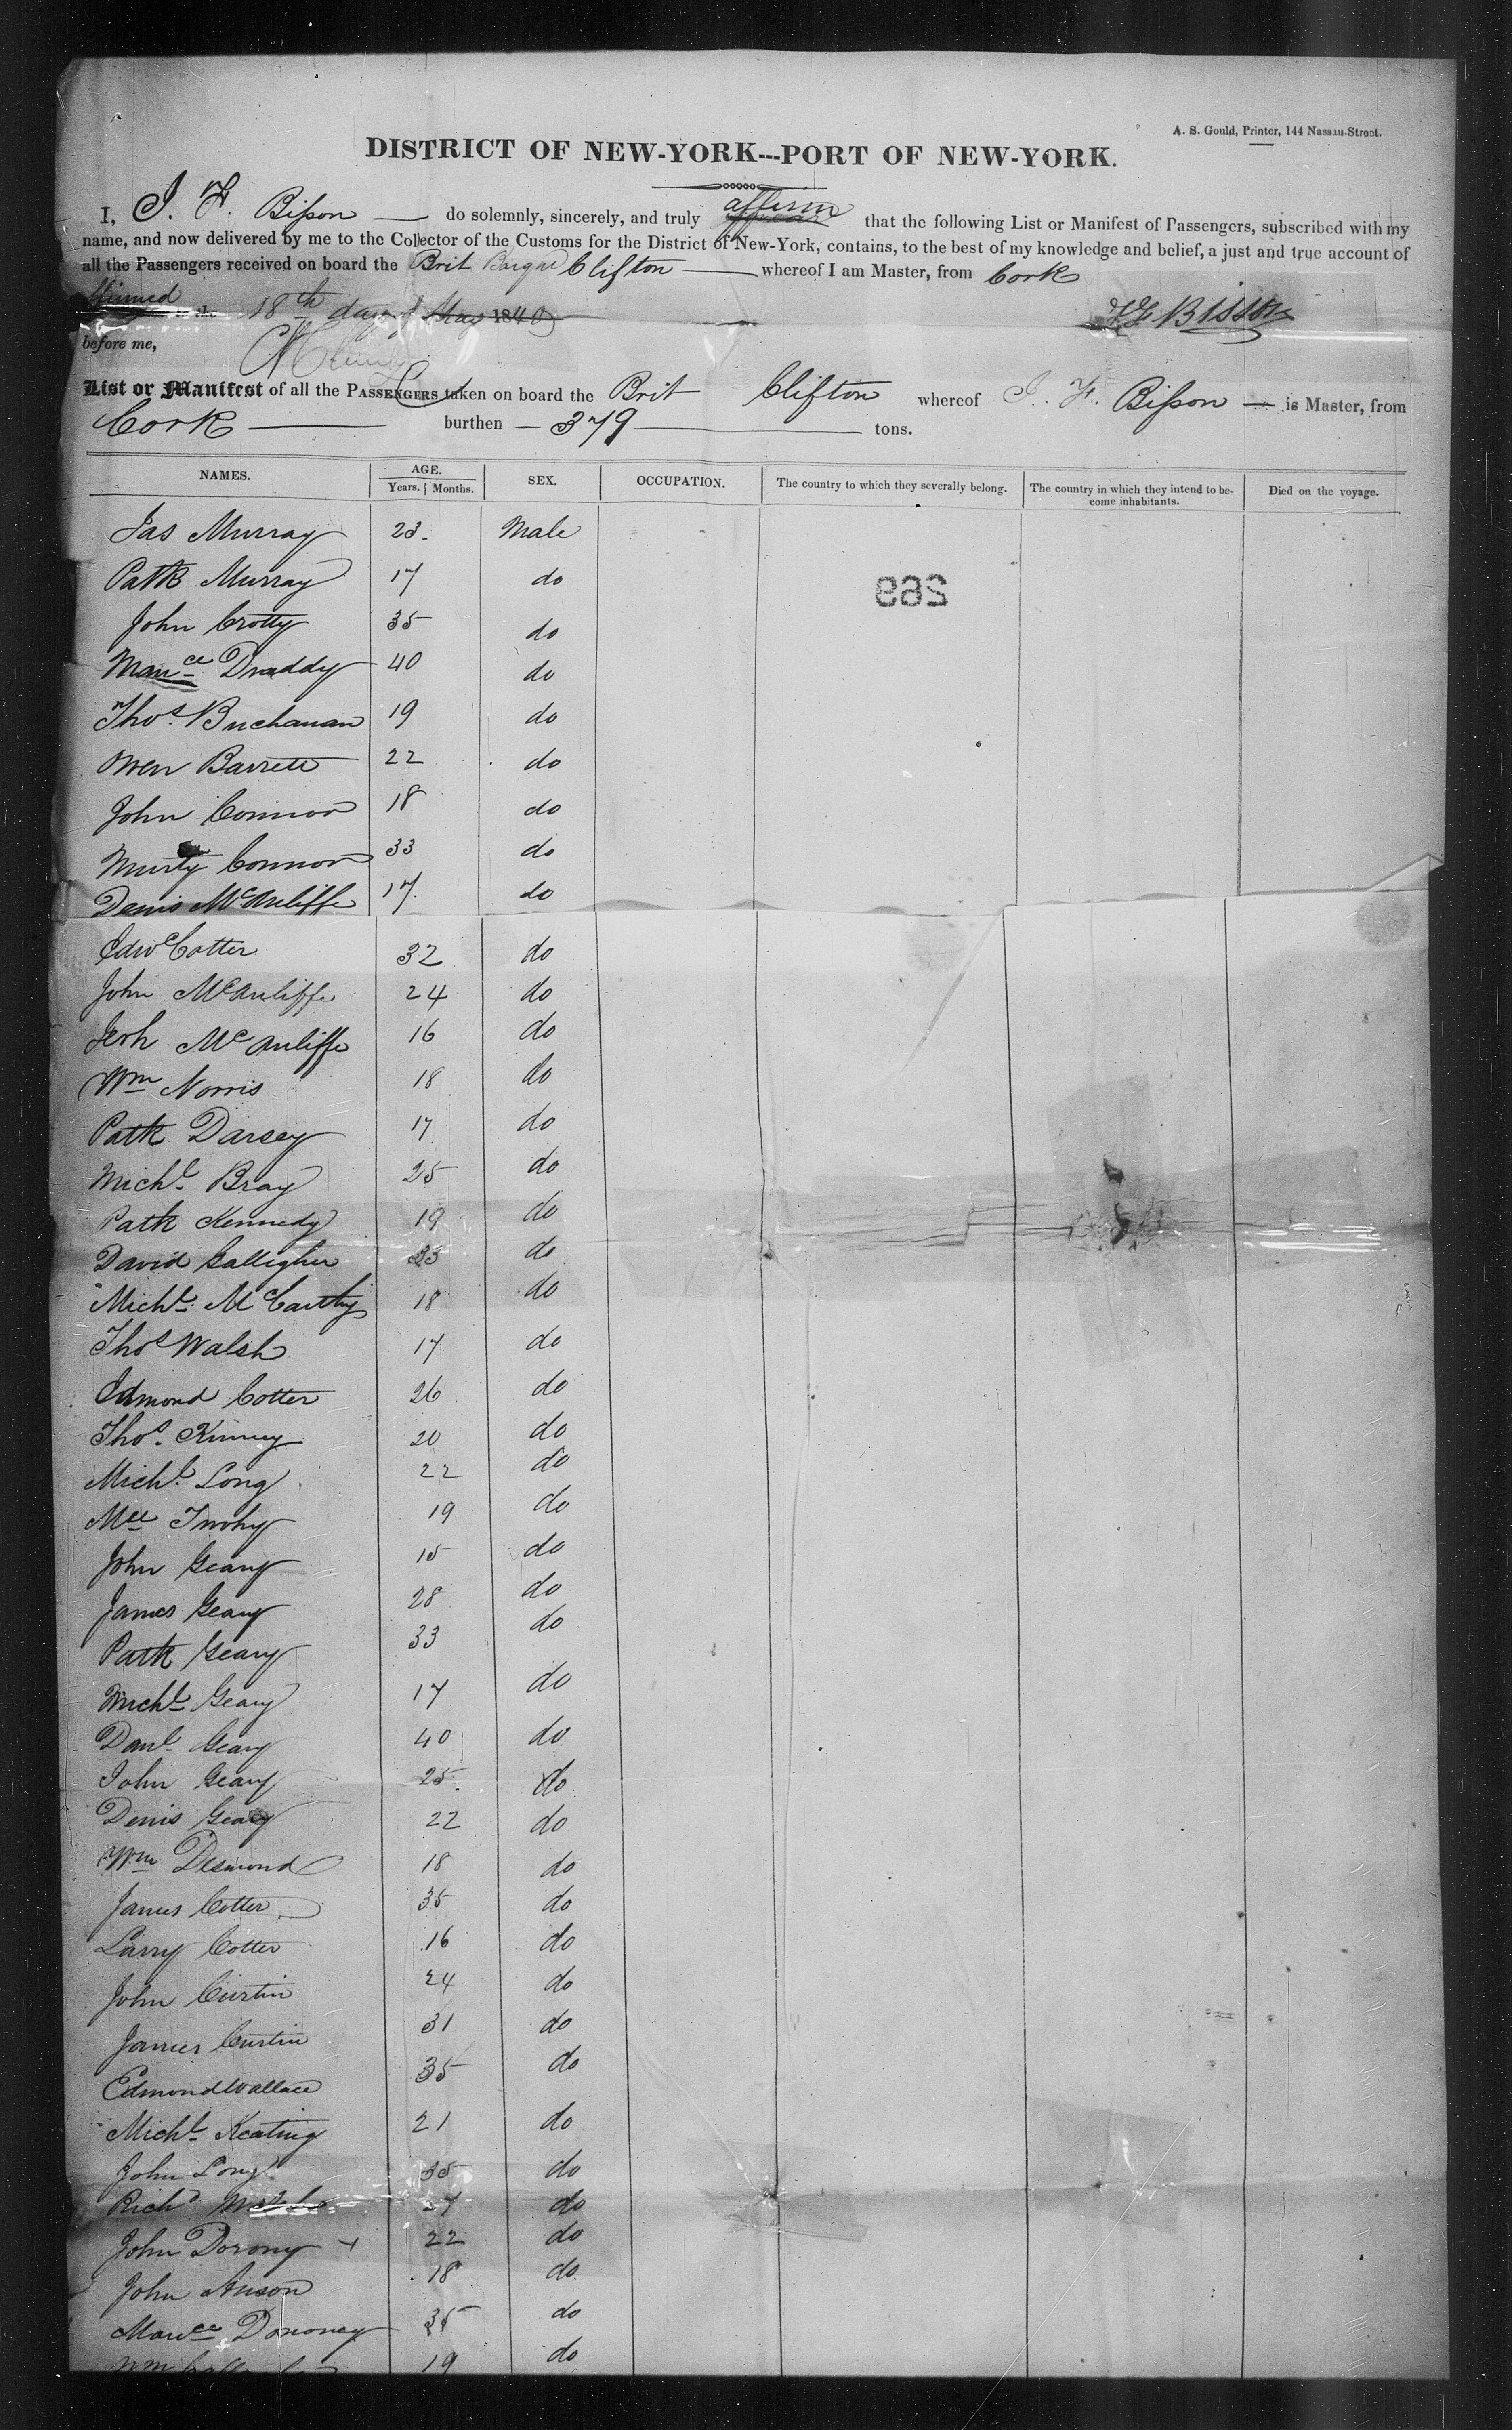 A. S. Gould, Printer, 144 Nassau-Street.
DISTRICT OF NEW-YORK---PORT OF NEW-YORK.
I, J. F. Bisson do solemnly, sincerely, and truly affirm that the following List or Manifest of Passengers, subscribed with my
name, and now delivered by me to the Collector of the Customs for the District of New-York, contains, to the best of my knowledge and belief, a just and true account of
all the Passengers received on board the Brit Barque Clifton whereof I am Master, from Cork
ffirmed to the 18th day of May 1840 J F BISSON
before me,
List or Manifest of all the PASSENGERS taken on board the Brit Clifton whereof J. F. Bisson is Master, from
Cork burthen 379 tons.
NAMES. AGE. Years. Months. SEX. OCCUPATION. The country to which they severally belong. The country in which they intend to become inhabitants. Died on the voyage.
Jas Murray 23. Male
Patk Murray 17 do
269
John Crotty 35 do
Mauce Draddy 40 do
Thos. Buchanan 19 do
Owen Barrett 22 do
John Connor 18 do
Murty Connor 33 do
Denis McAuliffe 17 do
Edwd Cotter 32 do
John McAuliffe 24 do
Jerh McAuliffe 16 do
Wm Norris 18 do
Patk Darsey 17 do
Michl Bray 25 do
Patk Kennedy 19 do
David Galligher 23 do
Michl McCarthy 18 do
Thos Walsh 17 do
Edmond Cotter 26 do
Thos. Kinney 20 do
Michl. Long 22 do
Mce Twohy 19 do
John Geany 15 do
James Geany 28 do
Patk Geany 33 do
Michl Geany 17 do
Danl Geany 40 do
John Geany 25 do
Denis Geany 22 do
Wm Desmond 18 do
James Cotter 35 do
Larry Cotter 16 do
John Curtin 24 do
James Curtin 31 do
Edmond Wallace 35 do
Michl Keating 21 do
John Long 35 do
Richd do
John Dorony + 22 do
John Anson 18 do
Mauce Dononey 35 do
Wm 19 do